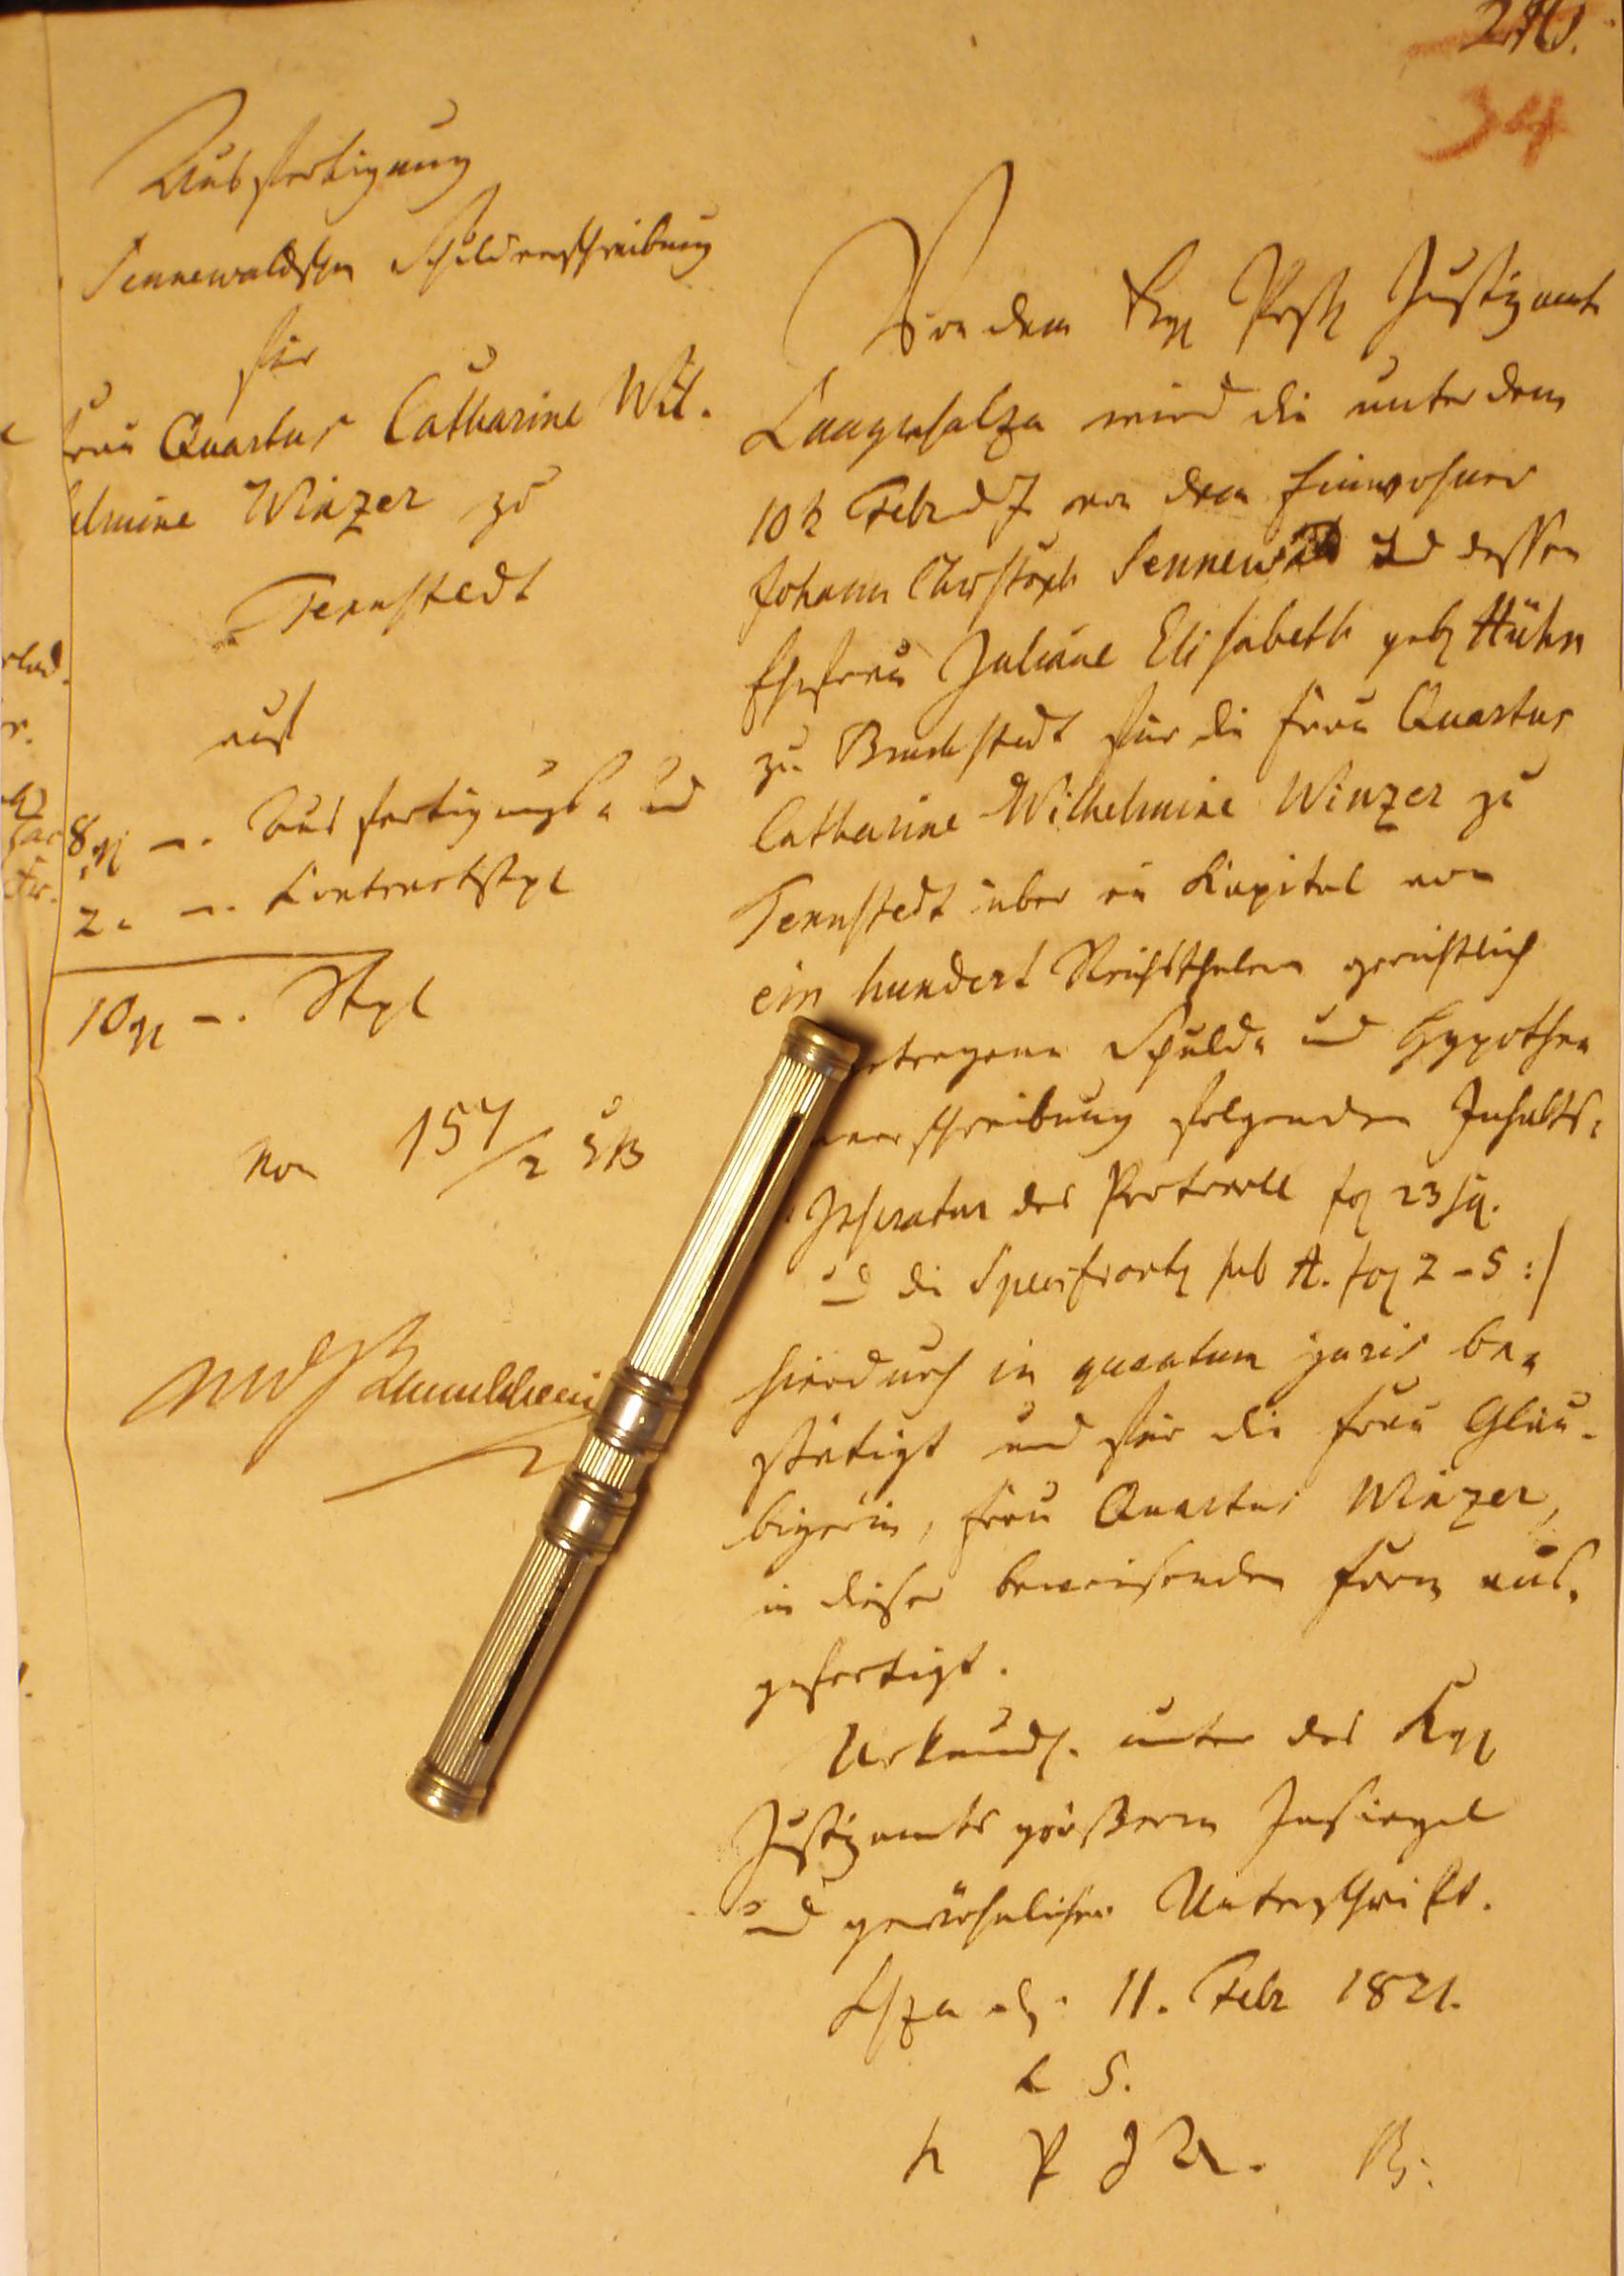 210.
34
Ausfertigung
Sennewaldschen Schuldverschreibung
für
Frau Quartus Catharine Wil-
helmine Winzer zu
Tennstedt
auf
8 g — . Ausfertigungs- und
2 " — . Contractstpl
10 g — . Stpl
von 157/2
Von dem Kgl Prß Justizamte
Langensalza wird die unter dem
10t Febr d J von dem Einwohner
Johann Christoph Sennewald und dessen
Ehefrau Juliane Elisabeth geb Hühn
zu Bruchstedt für die Frau Quartus
Catharine Wilhelmine Winzer zu
Tennstedt über ein Kapital von
ein hundert Reichsthalern gerichtlich
getragene Schuld- und Hypothen
verschreibung folgenden Inhalts:
Inseratur das Protocoll fol 23 sq.
und die sub A. fol 2-5 :/
hierdurch in quantum juris be-
stätigt und für die Frau Gläu-
bigerin, Frau Quartus Winzer,
in dieser beweisenden Form aus-
gefertigt.
Urkundl. unter des Kgl
Justizamts größerm Insiegel
und gewöhnlicher Unterschrift.
Lsza d. 11. Febr 1821.
L S.
K P J A. B.